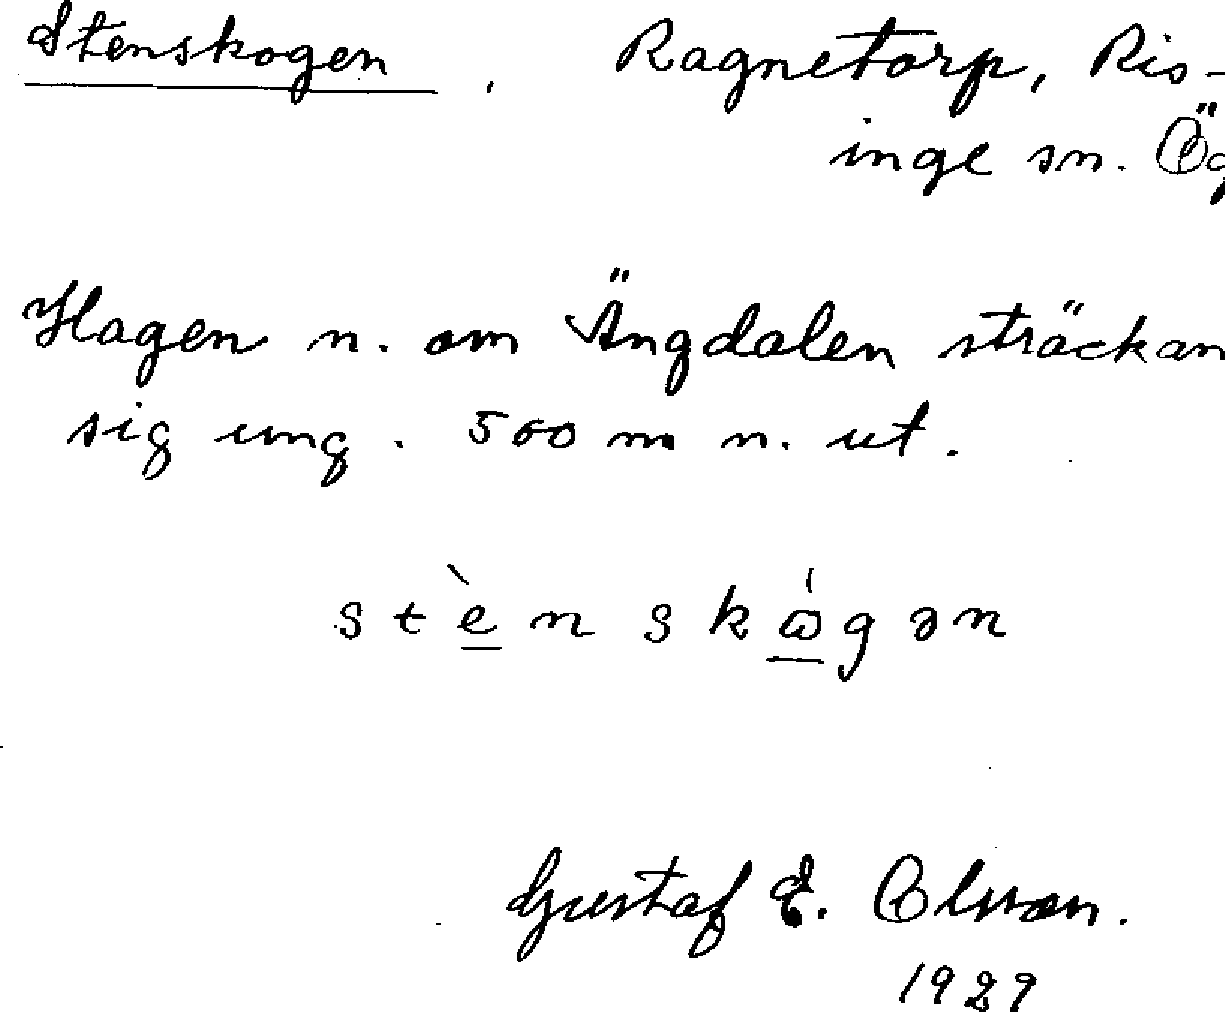 Stenskogen, Ragnetorp, Ris-
inge sn. Ög
Hagen n. om Ängdalen sträckan
sig ung. 500 m n. ut.
stè̱nskɷ̱́gən
Gustaf E. Olsson.
1929